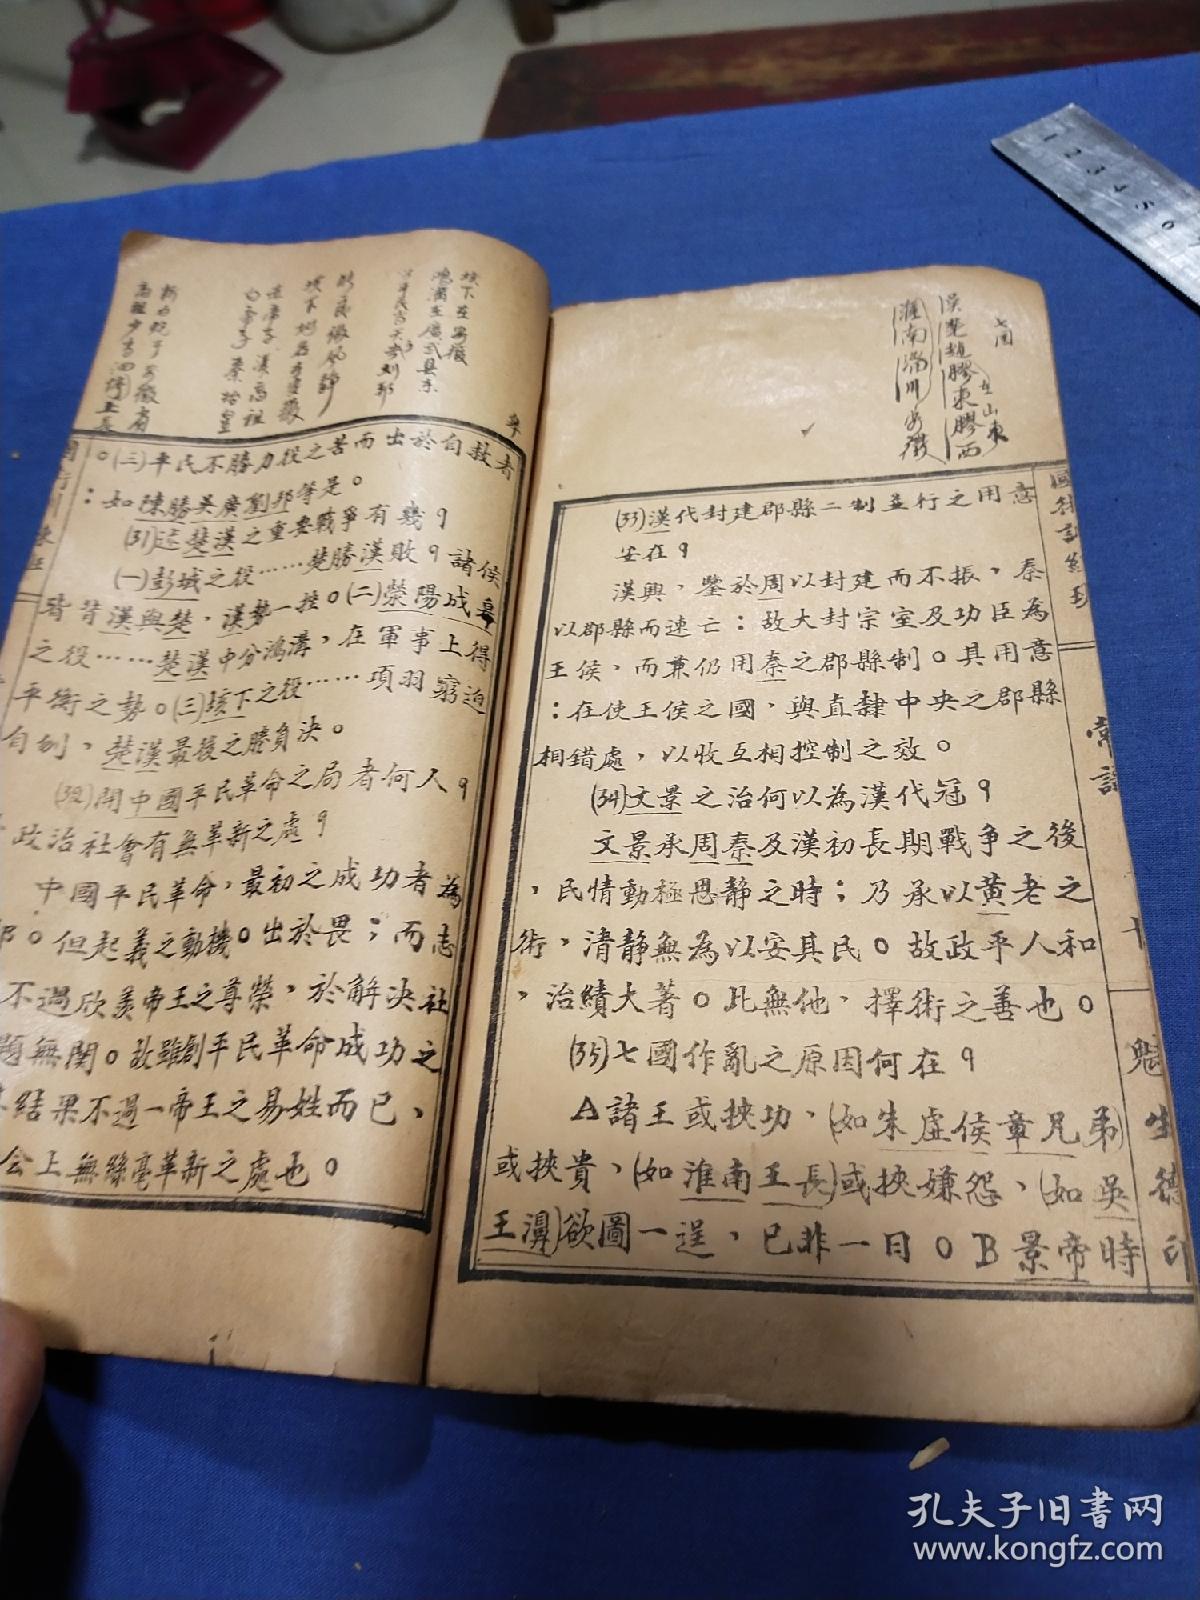 垓下在安徽
高祖
秦始皇
漢高祖
白帝子
。(三)平民不勝力役之苦而出於自救者
：如陳勝吳廣劉邦等是。
(31)述楚漢之重要戰爭有幾？
(一)彭城之役……楚勝漢敗，諸侯
皆背漢與楚，漢勢一挫。(二)滎陽成皋
之役……楚漢中分鴻溝，在軍事上得
平衡之勢。(三)垓下之役……項羽窮迫
自刎，楚漢最後之勝負決。
(32)開中國平民革命之局者何人？
政治社會有無革新之處？
中國平民革命，最初之成功者為
邦。但起義之動機。出於畏；而志
不過欣羨帝王之尊榮，於解決社
題無関。故雖創平民革命成功之
結果不過一帝王之易姓而已、
会上無絲毫革新之處也。
七国
吳楚趙膠東膠西
在山東
淮南
安徽
(33)漢代封建郡縣二制並行之用意
安在？
漢興，鑒於周以封建而不振，秦
以郡縣而速亡：故大封宗室及功臣為
王侯，而兼仍用秦之郡縣制。其用意
：在使王侯之國，與直隸中央之郡縣
相錯處，以收互相控制之效。
(34)文景之治何以為漢代冠？
文景承周秦及漢初長期戰爭之後
，民情動極思静之時；乃承以黄老之
術，清静無為以安其民。故政平人和
，治績大著。此無他，擇術之善也。
(35)七國作亂之原因何在？
A諸王或挾功、(如朱虛侯章兄弟)
或挾貴、(如淮南王長)或挾嫌怨、(如吳
王濞)欲圖一逞，已非一日。B景帝時
常識
十
魁生德印
1 2 3 4 5 6
孔夫子旧書网
www.kongfz.com